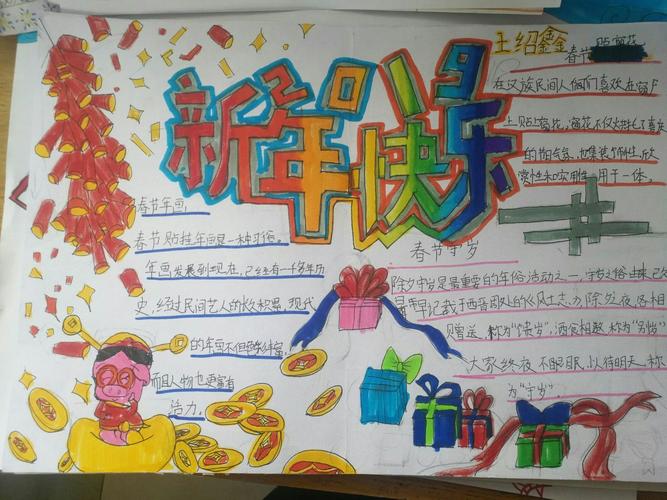 2019
新年快乐
王绍鑫
春节贴窗花
在汉族民间人们喜欢在窗户
上贴上窗花,窗花不仅烘托了喜庆
的节日气氛,也集装饰性,欣
赏性和实用性于一体。
春节年画
春节贴挂年画是一种习俗。
年画发展到现在,已经有一千多年历
史,经过民间艺人的长久积累,现代
的年画不但
而且人物也更富有
活力。
春节守岁
除夕守岁是最重要的年俗活动之一,守岁之俗由来已
最早记载于西晋周处的《风土志》:除夕之夜,各相
赠送,称为"馈岁",酒食相邀,称为"别岁"
大家终夜不眠,以待明天,称
为"守岁"。